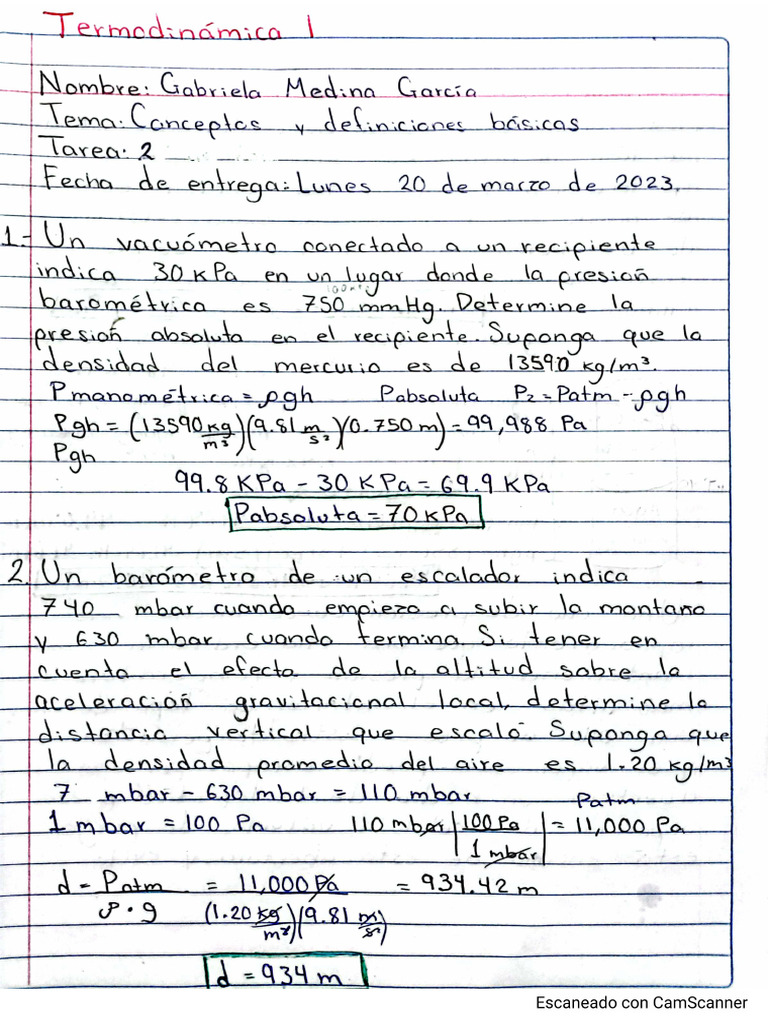 Termodinámica 1
Nombre: Gabriela Medina García
Tema: Conceptos y definiciones básicas
Tarea: 2
Fecha de entrega: Lunes 20 de marzo de 2023.
1.- Un vacuómetro conectado a un recipiente
indica 30 kPa en un lugar donde la presión
barométrica es 750 mmHg. Determine la
presión absoluta en el recipiente. Suponga que la
densidad del mercurio es de 13590 kg/m³.
Pmanométrica = ρgh Pabsoluta P₂ = Patm - ρgh
Pgh = (13590 kg/m³)(9.81 m/s²)(0.750 m) = 99,988 Pa
Pgh
99.8 KPa - 30 KPa = 69.9 KPa
Pabsoluta = 70 kPa
2. Un barómetro de un escalador indica
740 mbar cuando empieza a subir la montaña
y 630 mbar cuando termina. Si tener en
cuenta el efecto de la altitud sobre la
aceleración gravitacional local, determine la
distancia vertical que escaló. Suponga que
la densidad promedio del aire es 1.20 kg/m³
7 mbar - 630 mbar = 110 mbar
Patm
1 mbar = 100 Pa 110 mbar | 100 Pa / 1 mbar | = 11,000 Pa
d = Patm / ρ · g = 11,000 Pa / (1.20 kg/m³)(9.81 m/s²) = 934.42 m
d = 934 m
Escaneado con CamScanner